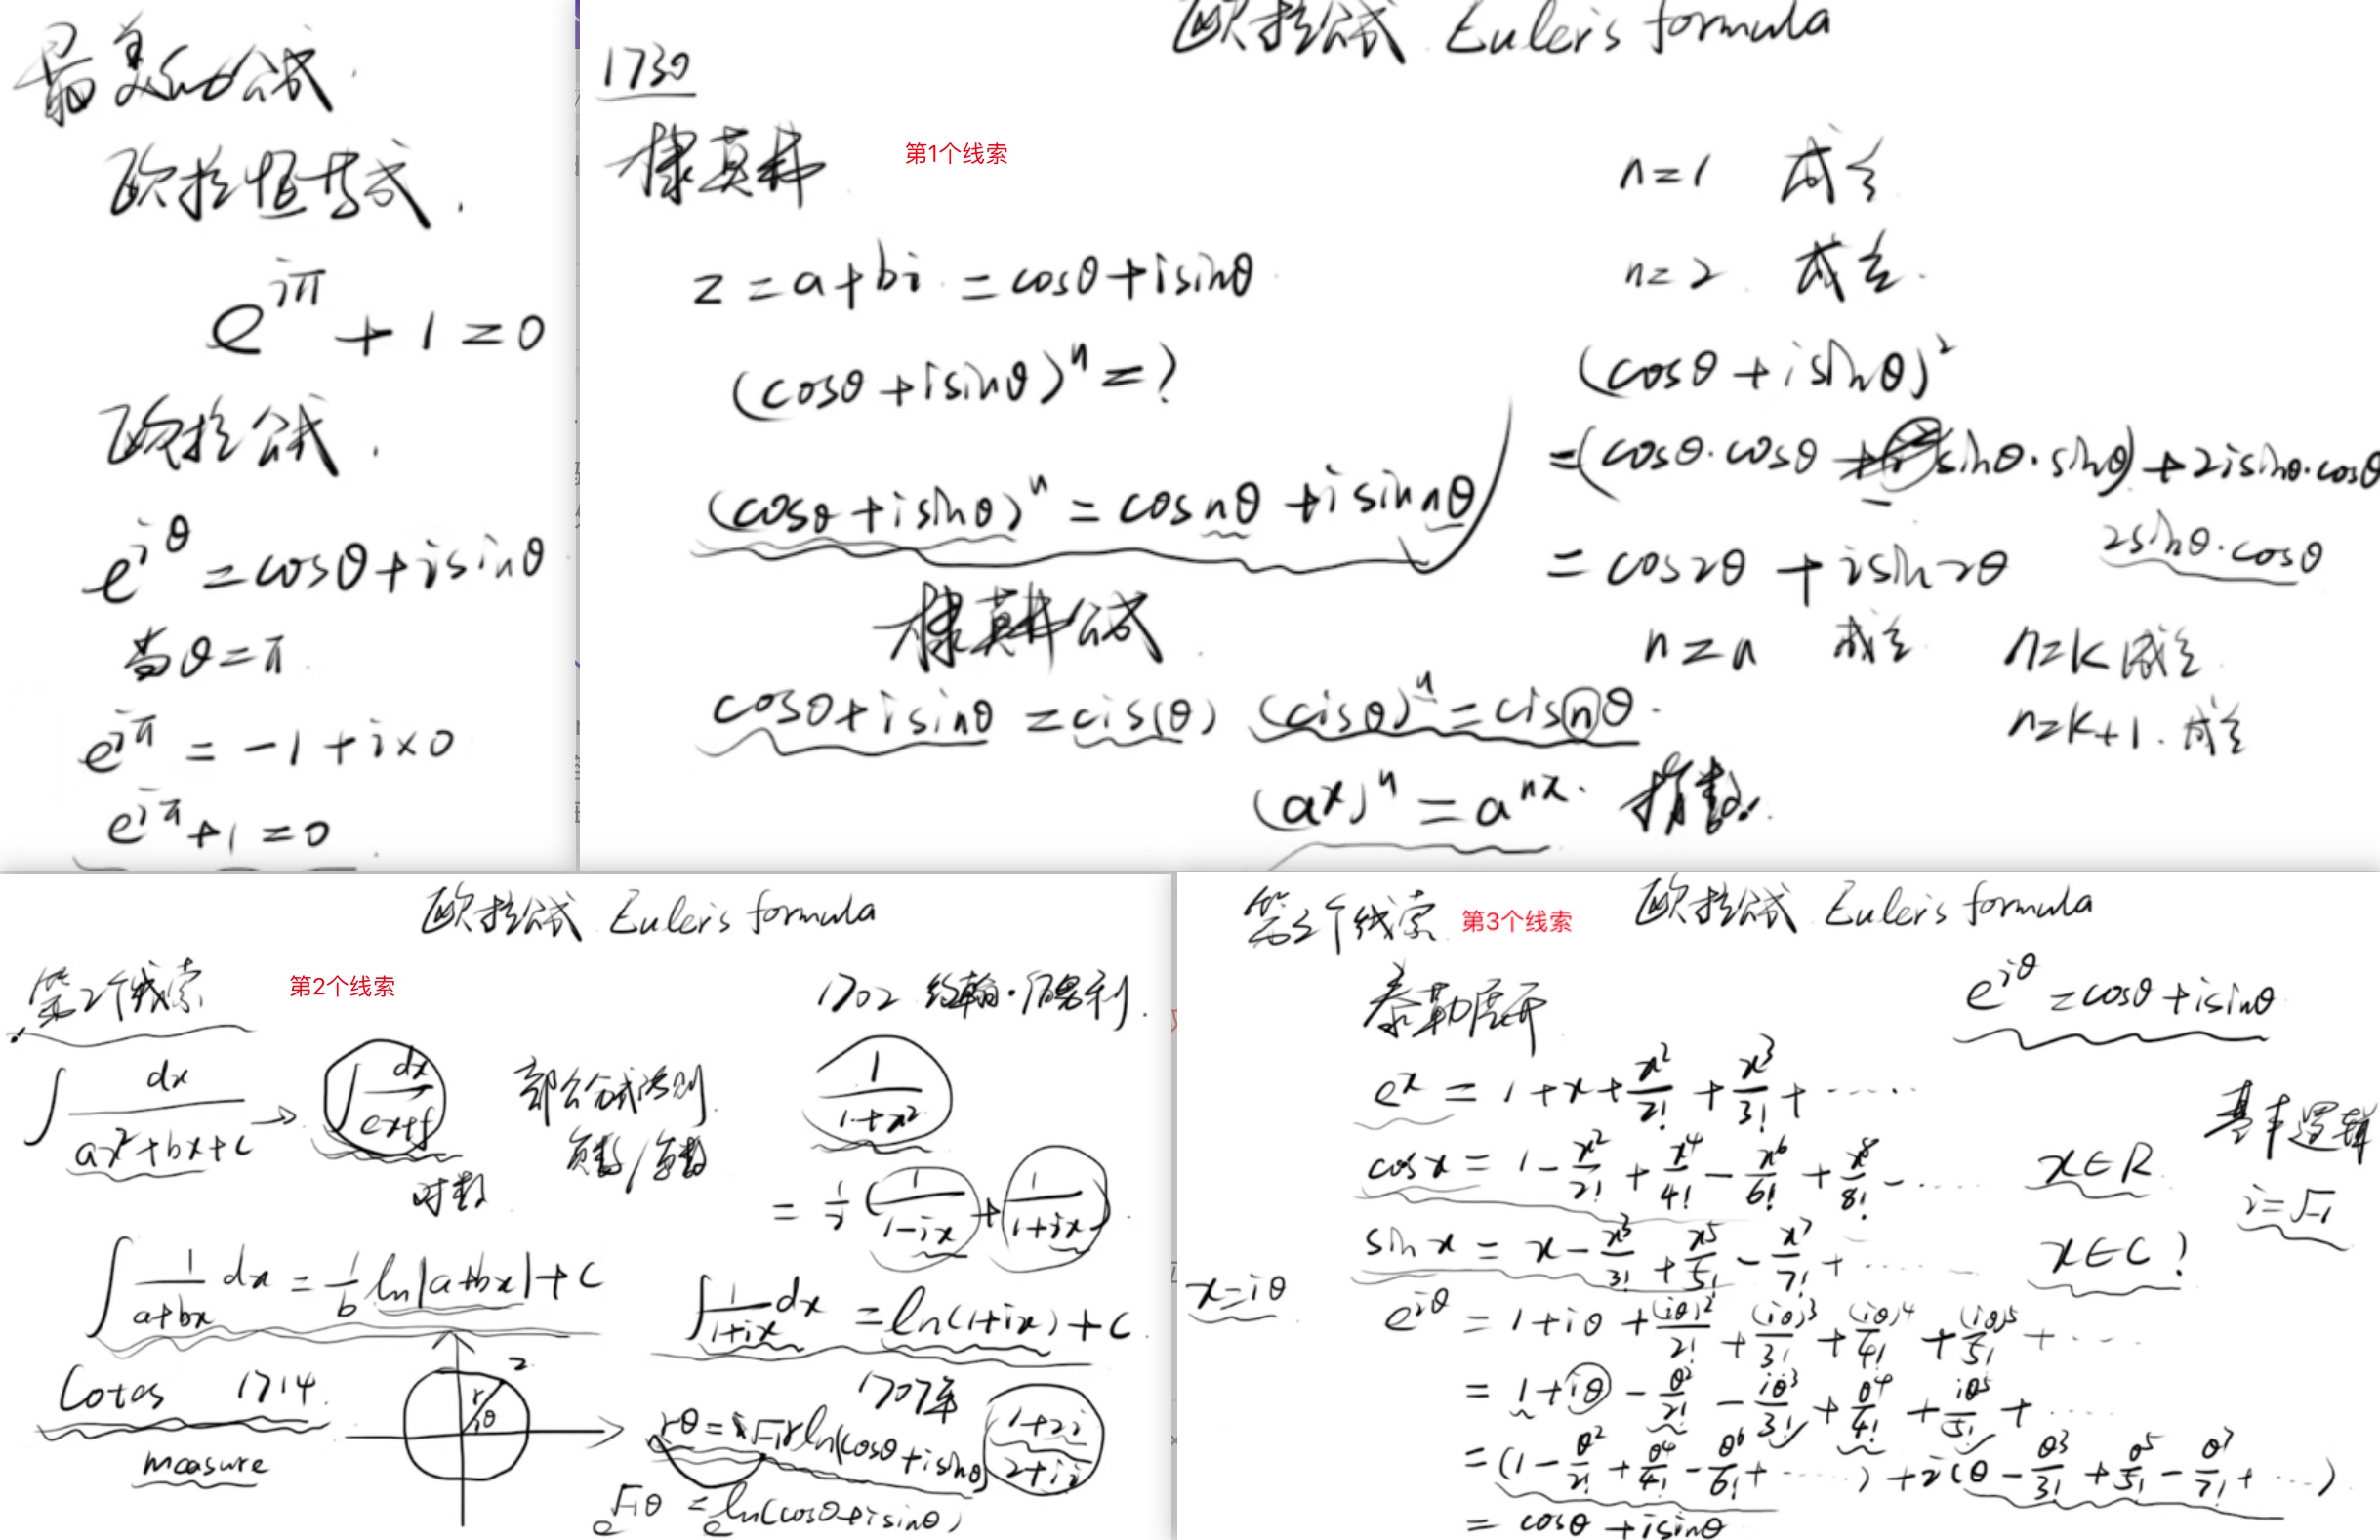 最美的公式.
欧拉恒等式.
e^{iπ} + 1 = 0
欧拉公式.
e^{iθ} = cosθ + isinθ
当θ = π.
e^{iπ} = -1 + i×0
e^{iπ} + 1 = 0
欧拉公式 Euler's formula
1730
棣莫弗
第1个线索
z = a + bi = cosθ + isinθ
(cosθ + isinθ)^n = ?
(cosθ + isinθ)^n = cosnθ + isinnθ
棣莫弗公式.
cosθ + isinθ = cis(θ) (cisθ)^n = cisnθ.
(a^x)^n = a^{nx}. 指数.
n = 1 成立
n = 2 成立.
(cosθ + isinθ)^2
= (cosθ·cosθ - sinθ·sinθ) + 2isinθ·cosθ
= cos2θ + isin2θ 2sinθ·cosθ
n = n 成立 n = k 成立
n = k+1. 成立
欧拉公式 Euler's formula
第2个线索 第2个线索
1702 约翰·伯努利.
∫ dx/(ax²+bx+c) → ∫ dx/(ex+f)
对数
部分分式法则.
1/(1+x²)
= 1/2 (1/(1-ix) + 1/(1+ix)).
∫ 1/(a+bx) dx = 1/b ln|a+bx| + C
∫ 1/(1+ix) dx = ln(1+ix) + C.
Cotes 1714.
measure
z
r
θ
1707年
rθ = √-1 r ln(cosθ + isinθ)
(1+2i)/(2+i)
e^{√-1θ} = e^{ln(cosθ + isinθ)}
欧拉公式 Euler's formula
第3个线索
泰勒展开
e^{iθ} = cosθ + isinθ
e^x = 1 + x + x²/2! + x³/3! + ......
cosx = 1 - x²/2! + x⁴/4! - x⁶/6! + x⁸/8! - ......
x∈R
基本逻辑
i = √-1
sinx = x - x³/3! + x⁵/5! - x⁷/7! + ......
x∈C?
x = iθ
e^{iθ} = 1 + iθ + (iθ)²/2! + (iθ)³/3! + (iθ)⁴/4! + (iθ)⁵/5! + ....
= 1 + iθ - θ²/2! - iθ³/3! + θ⁴/4! + iθ⁵/5! + ....
= (1 - θ²/2! + θ⁴/4! - θ⁶/6! + ......) + i(θ - θ³/3! + θ⁵/5! - θ⁷/7! + ...)
= cosθ + isinθ